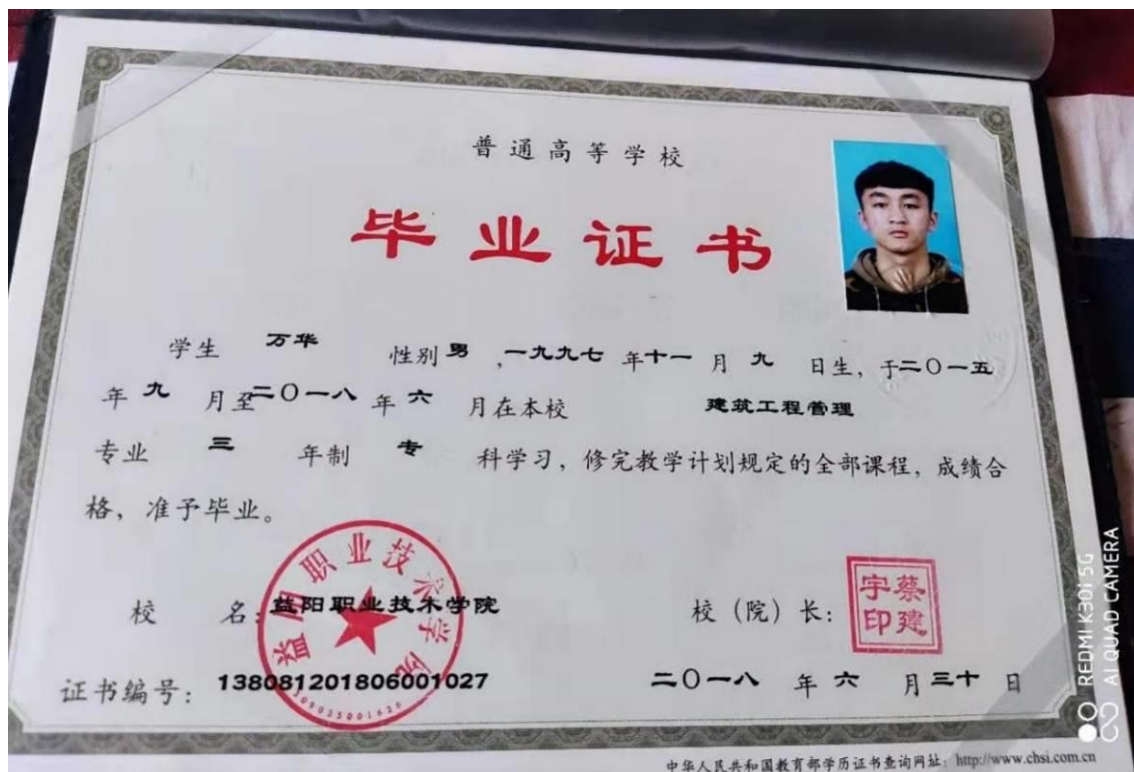 普通高等学校
毕业证书
学生 万华 性别 男 ,一九九七 年 十一 月 九 日生, 于二〇一五
年 九 月至二〇一八 年 六 月在本校 建筑工程管理
专业 三 年制 专 科学习, 修完教学计划规定的全部课程, 成绩合
格, 准予毕业。
益阳职业技术学院
校 名: 益阳职业技术学院 校 (院) 长: 蔡建宇印
证书编号: 138081201806001027 二〇一八 年 六 月 三十 日
中华人民共和国教育部学历证书查询网址: http://www.chsi.com.cn
REDMI K30i 5G
AI QUAD CAMERA